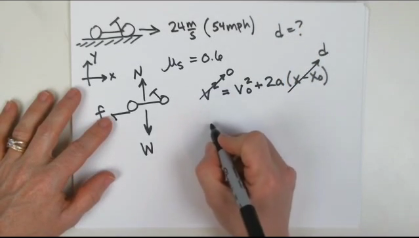 24 m/s (54mph) d = ?
μs = 0.6
Y
x
N
f
W
V² = V₀² + 2a(x - x₀)
0
d